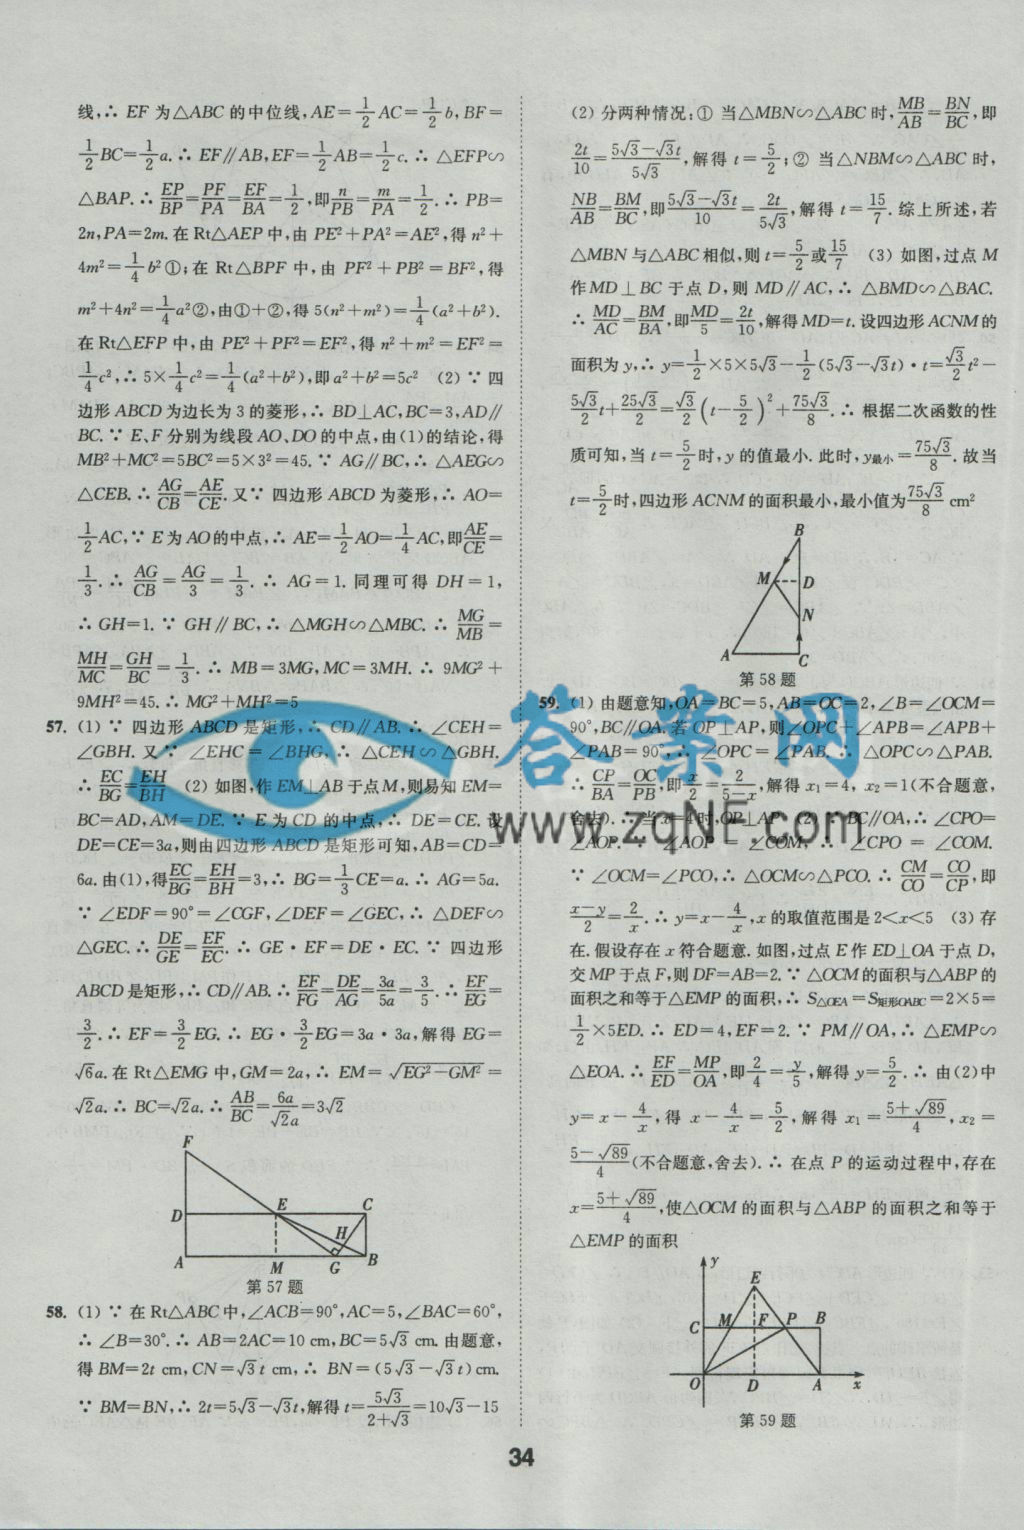 线,∴ EF 为△ABC 的中位线,AE=1/2 AC=1/2 b,BF=
1/2 BC=1/2 a.∴ EF∥AB,EF=1/2 AB=1/2 c.∴ △EFP∽
△BAP.∴ EP/BP=PF/PA=EF/BA=1/2,即n/PB=m/PA=1/2.∴ PB=
2n,PA=2m.在Rt△AEP中,由 PE²+PA²=AE²,得 n²+
4m²=1/4 b²①;在 Rt△BPF 中,由 PF²+PB²=BF²,得
m²+4n²=1/4 a²②,由①+②,得 5(n²+m²)=1/4(a²+b²).
在 Rt△EFP 中,由 PE²+PF²=EF²,得 n²+m²=EF²=
1/4 c²,∴ 5×1/4 c²=1/4(a²+b²),即 a²+b²=5c² (2) ∵ 四
边形 ABCD 为边长为 3 的菱形,∴ BD⊥AC,BC=3,AD∥
BC.∵ E、F 分别为线段 AO、DO 的中点,由(1)的结论,得
MB²+MC²=5BC²=5×3²=45.∵ AG∥BC,∴ △AEG∽
△CEB.∴ AG/CB=AE/CE.又∵ 四边形 ABCD 为菱形,∴ AO=
1/2 AC,∵ E 为 AO 的中点,∴ AE=1/2 AO=1/4 AC,即AE/CE=
1/3.∴ AG/CB=AG/3=1/3.∴ AG=1.同理可得 DH=1,
∴ GH=1.∵ GH∥BC,∴ △MGH∽△MBC.∴ MG/MB=
MH/MC=GH/BC=1/3.∴ MB=3MG,MC=3MH.∴ 9MG²+
9MH²=45.∴ MG²+MH²=5
57. (1) ∵ 四边形 ABCD 是矩形,∴ CD∥AB.∴ ∠CEH=
∠GBH.又∵ ∠EHC=∠BHG,∴ △CEH∽△GBH.
∴ EC/BG=EH/BH (2) 如图,作 EM⊥AB 于点 M,则易知 EM=
BC=AD,AM=DE.∵ E 为 CD 的中点,∴ DE=CE.设
DE=CE=3a,则由四边形 ABCD 是矩形可知,AB=CD=
6a.由(1),得EC/BG=EH/BH=3,∴ BG=1/3 CE=a.∴ AG=5a.
∵ ∠EDF=90°=∠CGF,∠DEF=∠GEC,∴ △DEF∽
△GEC.∴ DE/GE=EF/EC.∴ GE·EF=DE·EC.∵ 四边形
ABCD 是矩形,∴ CD∥AB.∴ EF/FG=DE/AG=3a/5a=3/5.∴ EF/EG=
3/2.∴ EF=3/2 EG.∴ EG·3/2 EG=3a·3a,解得 EG=
√6a.在 Rt△EMG 中,GM=2a,∴ EM=√(EG²-GM²)=
√2a.∴ BC=√2a.∴ AB/BC=6a/√2a=3√2
F
D
E
C
H
A
M
G
B
第57题
58. (1) ∵ 在 Rt△ABC 中,∠ACB=90°,AC=5,∠BAC=60°,
∴ ∠B=30°.∴ AB=2AC=10 cm,BC=5√3 cm.由题意,
得 BM=2t cm,CN=√3t cm,∴ BN=(5√3-√3t)cm.
∵ BM=BN,∴ 2t=5√3-√3t,解得 t=5√3/(2+√3)=10√3-15
(2) 分两种情况:① 当△MBN∽△ABC 时,MB/AB=BN/BC,即
2t/10=(5√3-√3t)/5√3,解得 t=5/2;② 当△NBM∽△ABC 时,
NB/AB=BM/BC,即(5√3-√3t)/10=2t/5√3,解得 t=15/7.综上所述,若
△MBN 与△ABC 相似,则 t=5/2或15/7 (3) 如图,过点 M
作 MD⊥BC 于点 D,则 MD∥AC,∴ △BMD∽△BAC.
∴ MD/AC=BM/BA,即MD/5=2t/10,解得 MD=t.设四边形 ACNM 的
面积为 y,∴ y=1/2×5×5√3-1/2(5√3-√3t)·t=√3/2 t²-
5√3/2 t+25√3/2=√3/2(t-5/2)²+75√3/8.∴ 根据二次函数的性
质可知,当 t=5/2时,y 的值最小.此时,y最小=75√3/8.故当
t=5/2时,四边形 ACNM 的面积最小,最小值为75√3/8 cm²
B
M
D
N
A
C
第58题
59. (1) 由题意知,OA=BC=5,AB=OC=2,∠B=∠OCM=
90°,BC∥OA.若 OP⊥AP,则∠OPC+∠APB=∠APB+
∠PAB=90°,∴ ∠OPC=∠PAB.∴ △OPC∽△PAB.
∴ CP/BA=OC/PB,即x/2=2/(5-x),解得 x₁=4, x₂=1(不合题意,
舍去).∴ 当 x=4 时,OP⊥AP (2) ∵ BC∥OA,∴ ∠CPO=
∠AOP. ∠AOP = ∠COM, ∴ ∠CPO = ∠COM.
∵ ∠OCM=∠PCO,∴ △OCM∽△PCO.∴ CM/CO=CO/CP,即
(x-y)/2=2/x.∴ y=x-4/x,x 的取值范围是 2<x<5 (3) 存
在.假设存在 x 符合题意.如图,过点 E 作 ED⊥OA 于点 D,
交 MP 于点 F,则 DF=AB=2.∵ △OCM 的面积与△ABP 的
面积之和等于△EMP 的面积,∴ S△OEA=S矩形OABC=2×5=
1/2×5ED.∴ ED=4,EF=2.∵ PM∥OA,∴ △EMP∽
△EOA.∴ EF/ED=MP/OA,即2/4=y/5,解得 y=5/2.∴ 由(2)中
y=x-4/x,得 x-4/x=5/2,解得 x₁=(5+√89)/4,x₂=
(5-√89)/4(不合题意,舍去).∴ 在点 P 的运动过程中,存在
x=(5+√89)/4,使△OCM 的面积与△ABP 的面积之和等于
△EMP 的面积
y
E
C
M
F
P
B
O
D
A
x
第59题
34
答案网
www.zqNF.com